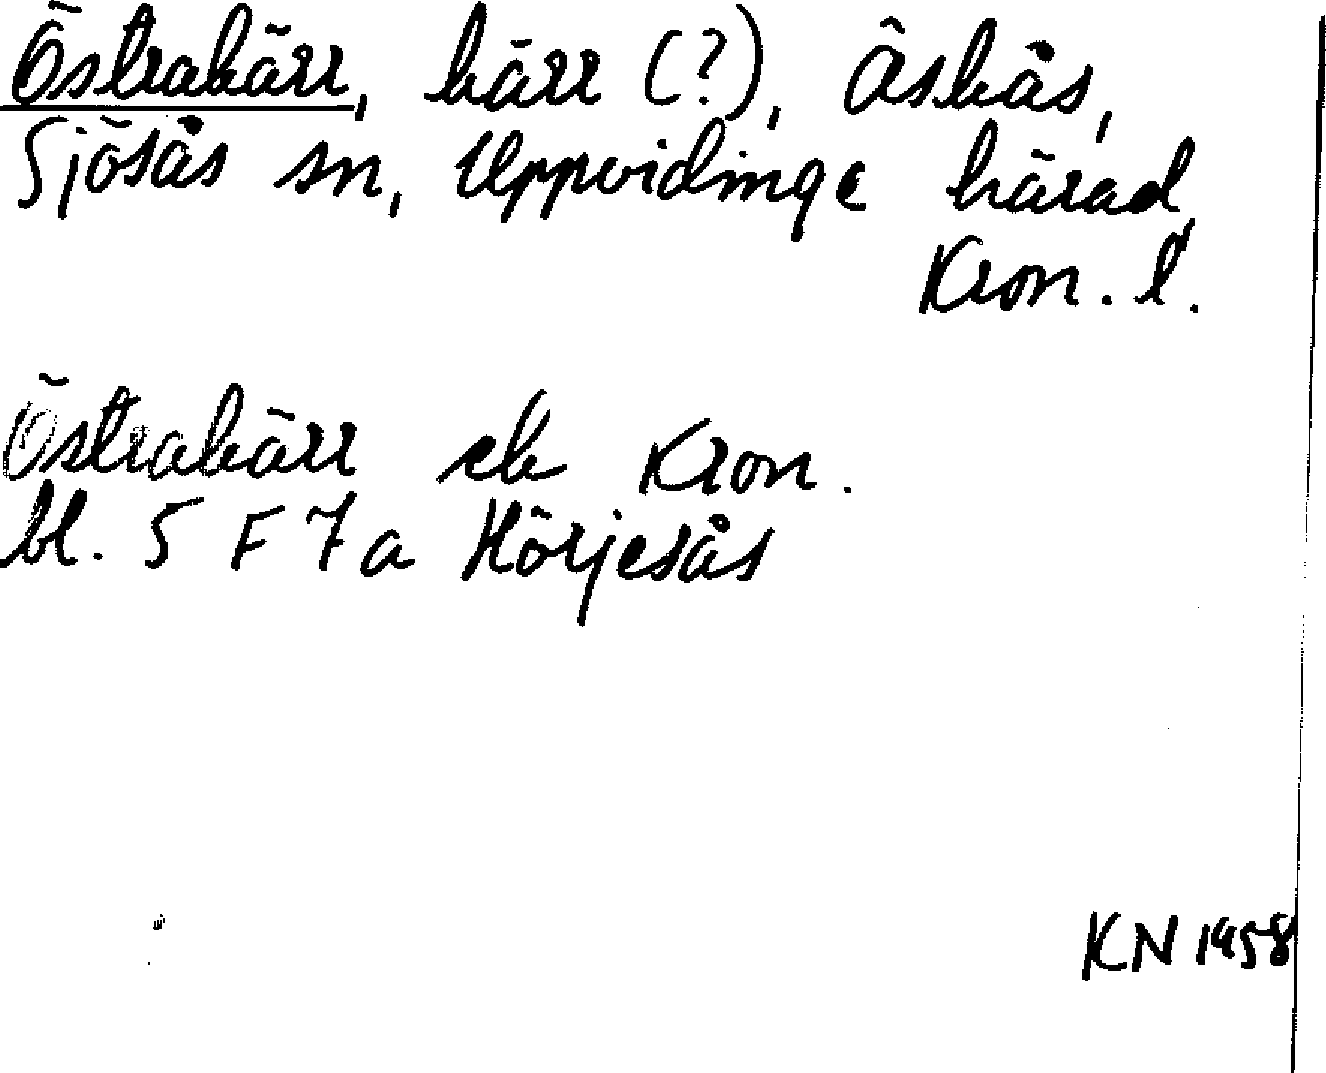 Östrakärr, kärr (?), Åskås,
Sjösås sn, Uppvidinge härad,
Kron. l.
Östrakärr ek Kron.
bl. 5 F 7 a Hörjesås
KN 1958